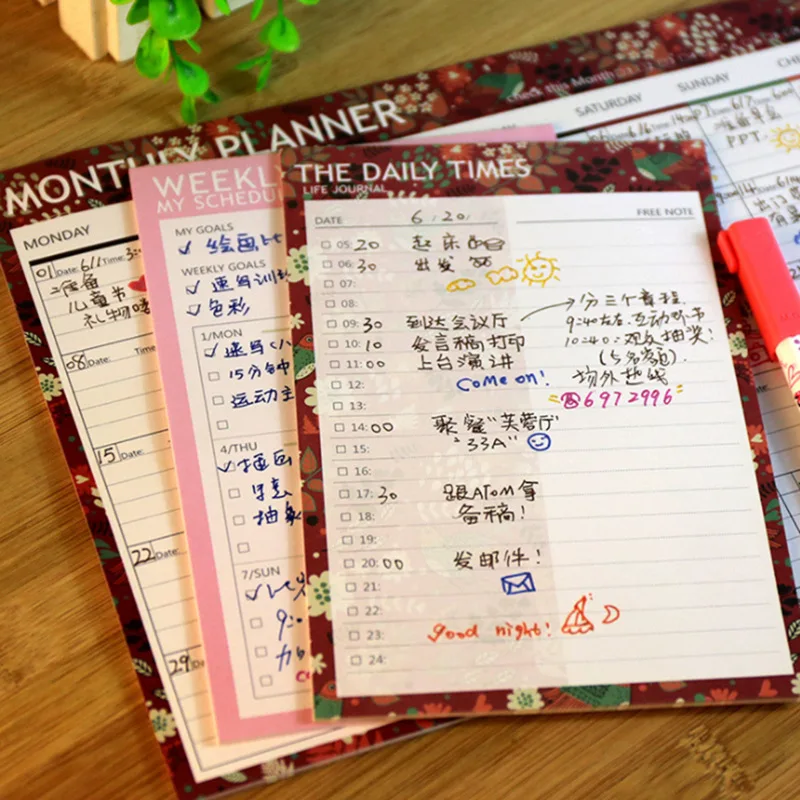 MONTHLY PLANNER
check the Month
SATURDAY
SUNDAY
PPT
MONDAY
01 Date: 6/1 Time: 3:
儿童节
礼物
08 Date: Time
15 Date:
22 Date:
29
WEEKLY
MY SCHEDU
MY GOALS
绘画
WEEKLY GOALS
速写训
色彩
1/MON
速写
15分钟
运动
4/THU
插画
抽象
7/SUN
9:
THE DAILY TIMES
LIFE JOURNAL
DATE 6/20/ FREE NOTE
05: 20 起床
06: 30 出发
07:
08:
09: 30 到达会议厅 → 分三个章程.
10: 10 发言稿打印 9:40左右.互动环节
11: 00 上台演讲 10:40:观众抽奖!
12: Come on! (5名/)
场外热线
13: ☎6972996
14: 00 聚餐"芙蓉厅"
15: "33A"
16:
17: 30 跟ATOM拿
18: 备稿!
19:
20: 00 发邮件!
21:
22:
23: good night!
24: